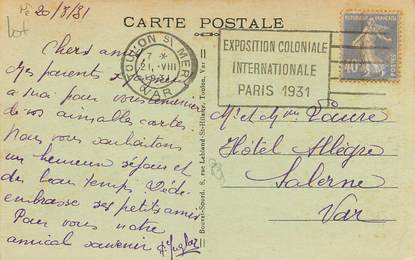 20/8/31
CARTE POSTALE
Chers amis
Mes parents se joignent
à moi pour vous remercier
de vos aimables cartes.
Nous vous souhaitons
un heureux séjour et
du beau temps. Dédé
embrasse ses petits amis
Pour vous notre
amical souvenir
TOULON S MER
21 VIII
1931
VAR
EXPOSITION COLONIALE
INTERNATIONALE
PARIS 1931
40
Bouvet-Sourd, 8, rue Lebland St-Hilaire, Toulon, Var
M. et Mme Faure
Hôtel Allègre
Salerne
Var